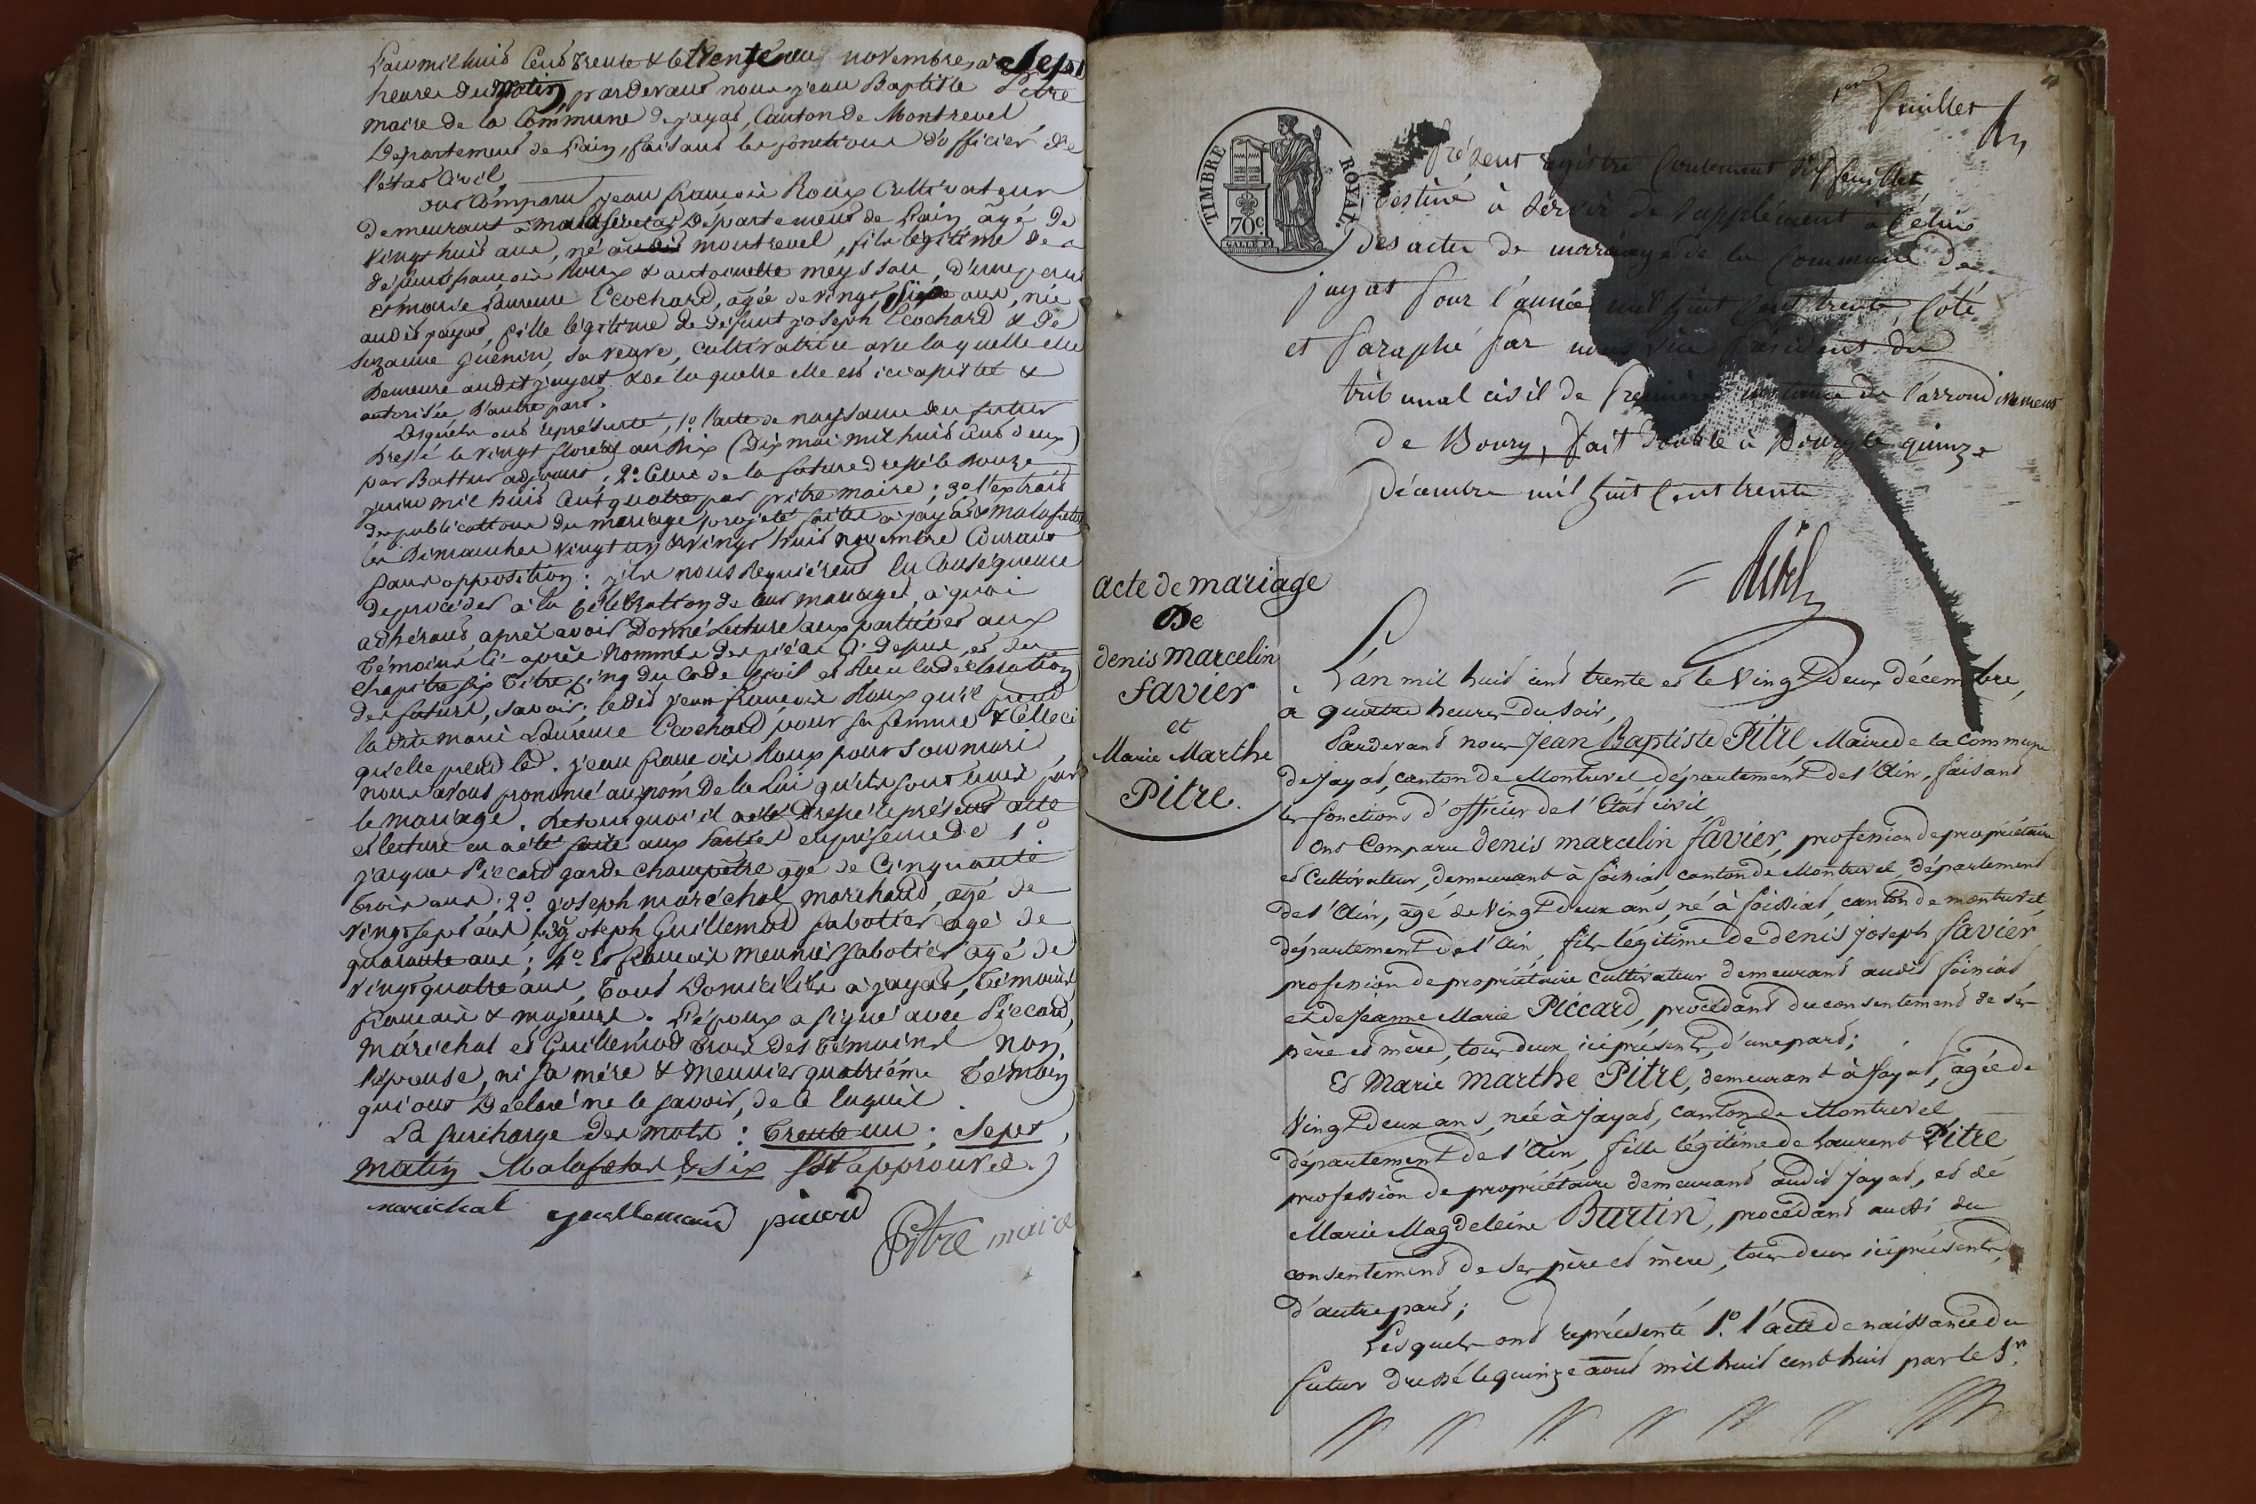 L'an mil huit Cent Trente & le trente un novembre, à Sept
heures du Matin, pardevant nous jean Baptiste Pitre
maire de la Commune de jayat, Canton de Montrevel
Département de L'ain, faisant les fonctions d'officier de
l'état Civil,
ont Comparu jean françois Roux Cultivateur
demeurant à malafretas Département de L'ain âgé de
vingt huit ans, né audit montrevel, fils légitime de
défunt françois Roux & antoinette meyssou, d'une part
et marie Laurence Ecochard, âgée de vingt six ans, née
audit jayat, fille légitime de défunt joseph Ecochard & de
Suzanne Guenin, sa veuve, Cultivatrice avec laquelle elle
Demeure audit jayat & de laquelle elle est ici assistée &
autorisée D'autre part.
Lesquels ont représenté, 1o l'acte de nayssance du futur
dressé le vingt floréal an Dix (Dix mai mil huit cent deux)
par Battur adjoint; 2o Celui de la future dressé le Douze
juin mil huit Cent quatre par pitre maire; 3o l'extrait
des publications du mariage projeté faites à jayat & malafretas
les Dimanches vingt un & vingt huit novembre Courant
sans opposition: ils nous Requièrent en Conséquence
de procéder à la Célébration de leur mariage, à quoi
adhérant, après avoir Donné Lecture aux parties et aux
témoins Ci-après nommés des pièces Ci-dessus, et du
chapitre six Titre cinq du Code Civil et Reçu la déclaration
des futurs, savoir; ledit jean françois Roux qu'il prend
la dite marie Laurence Ecochard pour sa femme & Celle ci
qu'elle prend led. jean françois Roux pour son mari
nous avons prononcé au nom de la Loi qu'ils sont unis par
le mariage. De tout quoi il a été Dressé le présent acte
et lecture en a été faite aux Parties en présence de 1o
jacques Piccard garde champêtre âgé de Cinquante
trois ans; 2o joseph maréchal marchand, âgé de
vingt sept ans; 3o joseph Guillemod sabotier âgé de
quarante ans; 4o & françois Meunier sabotier âgé de
vingt quatre ans, Tous Domiciliés à jayat, Témoins
français & majeurs. L'époux a signé avec Piccard,
maréchal et Guillemod trois des témoins non
l'épouse, ni sa mère & Meunier quatrième Témoin
qui ont Déclaré ne le savoir, de ce Enquis.
La surcharge des mots: trente un; sept,
matin Malafretas & six sst approuvée.
marichal guillemaud picard
Pitre maire
1er feuillet
TIMBRE ROYAL
70c.
présent registre Contenant dix feuillets
destiné à servir de supplément à celui
des actes de mariage de la Commune de
jayat pour l'année mil huit cent trente, Coté
et Paraphé par nous vice président du
tribunal civil de Première instance de l'arrondissement
de Bourg, fait double à Bourg le quinze
décembre mil huit Cent trente
acte de mariage
De
denis marcelin
favier
et
Marie Marthe
Pitre.
L'an mil huit cent trente et le vingt deux décembre,
à quatre heures du soir,
Pardevant nous Jean Baptiste Pitre Maire de la commune
de Jayat, canton de Montrevel, département de l'Ain, faisant
les fonctions d'officier de l'état civil
Ont Comparu denis marcelin favier, profession de propriétaire
et cultivateur, demeurant à foissiat, canton de Montrevel, département
de l'Ain, âgé de vingt deux ans, né à foissiat, canton de montrevel,
département de l'Ain, fils légitime de denis joseph favier,
profession de propriétaire cultivateur demeurant audit foissiat,
et de Jeanne Marie Piccard, procédant du consentement de ses
père et mère, tous deux ici présents, d'une part;
Et Marie Marthe Pitre, demeurant à Jayat, âgée de
vingt deux ans, née à Jayat, canton de Montrevel,
département de l'Ain, fille légitime de Laurent Pitre
profession de propriétaire demeurant audit Jayat, et de
Marie Magdeleine Burtin, procédant aussi du
consentement de ses père et mère, tous deux ici présents,
d'autre part;
Lesquels ont représenté 1o. l'acte de naissance du
futur dressé le quinze août mil huit cent huit par le Sr.